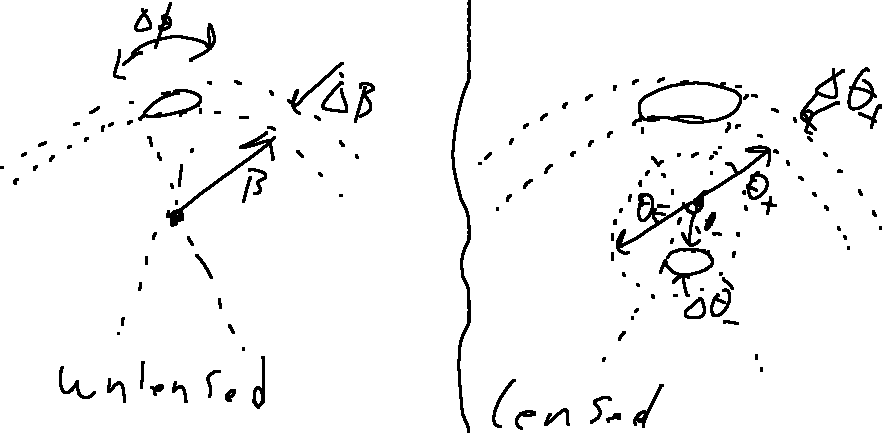 Δϕ
ΔB
B
unlensed
Δθ+
θ+
θE
θ-
Δθ-
lensed